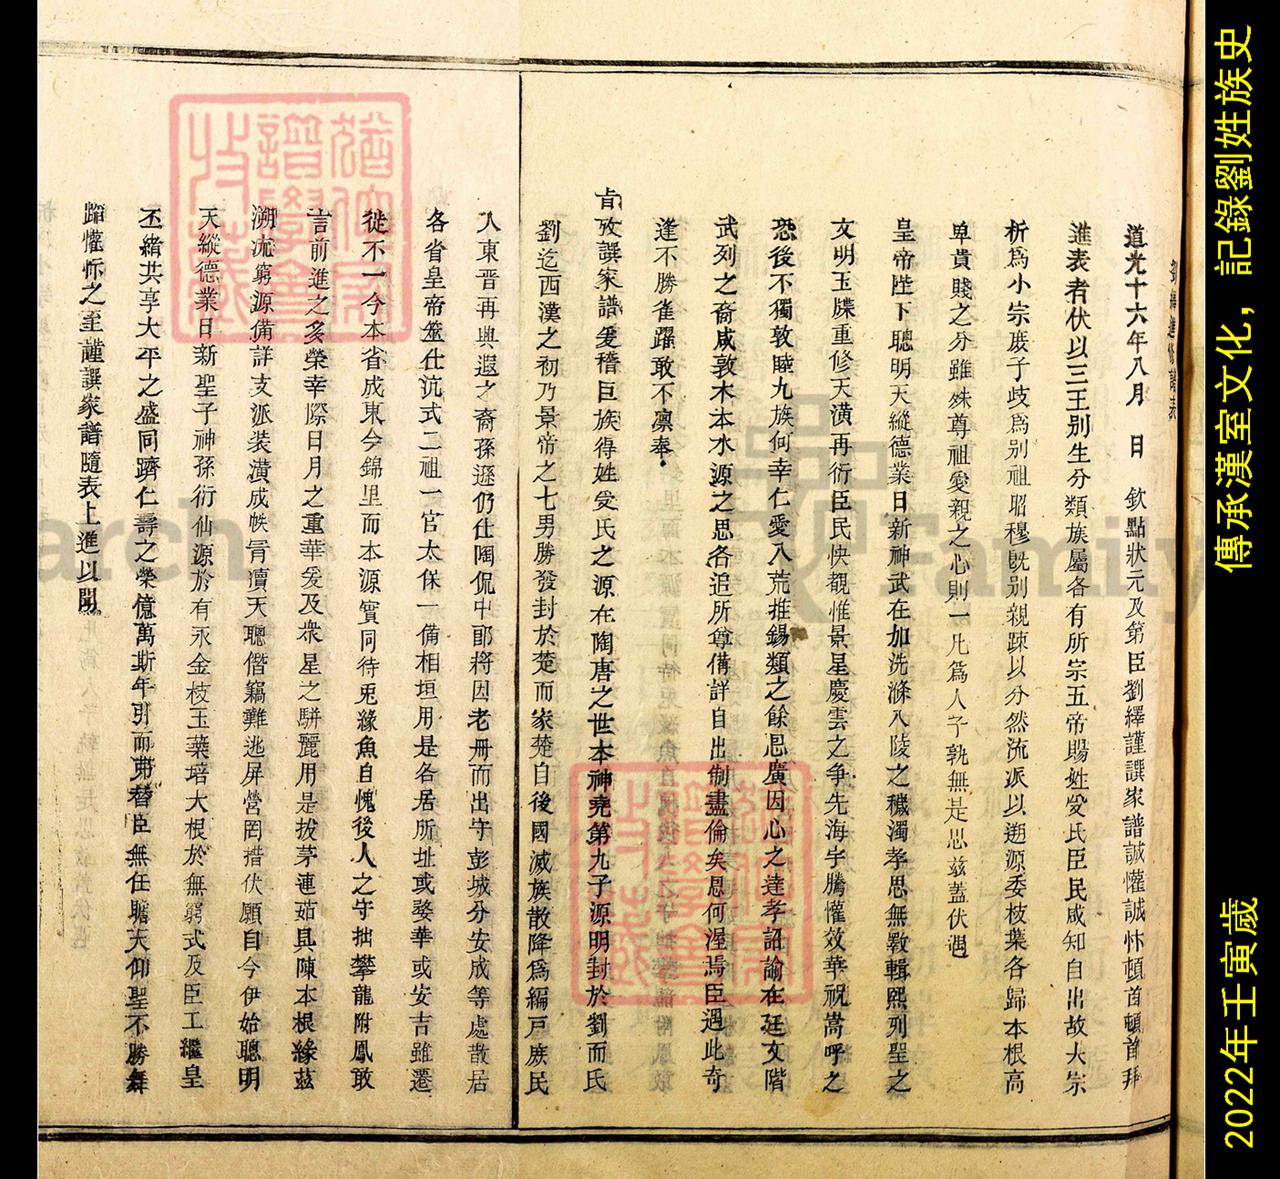 劉繹進修譜表
道光十六年八月　日　欽點狀元及第臣劉繹謹譔家譜誠懽誠忭頓首頓首拜
進表者伏以三王别生分類族屬各有所宗五帝賜姓受氏臣民咸知自出故大宗
析爲小宗庶子歧爲别祖昭穆既别親踈以分然流派以遡源委枝葉各歸本根高
卑貴賤之分雖殊尊祖愛親之心則一凡爲人子孰無是思兹蓋伏遇
皇帝陛下聰明天縱德業日新神武在加洗滌八陵之穢濁孝思無斁輯熙列聖之
文明玉牒重修天潢再衍臣民快覩惟景星慶雲之争先海宇騰懽效華祝嵩呼之
恐後不獨敦睦九族何幸仁愛八荒推錫類之餘恩廣因心之達孝詔諭在廷文階
武列之裔咸敦木本水源之思各追所尊備詳自出制盡倫矣恩何渥焉臣遇此奇
逢不勝雀躍敢不凛奉
旨攷譔家譜爰稽巨族得姓受氏之源在陶唐之世本神堯第九子源明封於劉而氏
劉迄西漢之初乃景帝之七男勝發封於楚而家楚自後國滅族散降爲編戸庶民
入東晋再興遐之裔孫遜仍仕陶侃中郎將因老毌而出守彭城分安成等處散居
各省皇帝筮仕沆式二祖一官太保一備相垣用是各居所址或婺華或安吉雖遷
徙不一今本省成東今錦里而本源實同待兎緣魚自愧後人之守拙攀龍附鳳敢
言前進之多榮幸際日月之重華爰及衆星之駢麗用是拔茅連茹具陳本根緣兹
溯流窮源備詳支派装潢成帙冐瀆天聰僭竊難逃屏營罔措伏願自今伊始聰明
天縱德業日新聖子神孫衍仙源於有永金枝玉葉培大根於無窮式及臣工繼皇
丕緒共享大平之盛同躋仁壽之榮億萬斯年引而弗替臣無任瞻天仰聖不勝舞
蹈懽忭之至謹譔家譜隨表上進以聞
傳承漢室文化，記錄劉姓族史
2022年壬寅歲